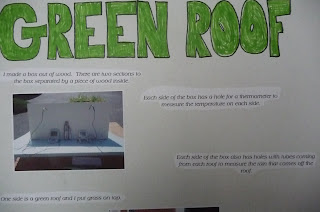 GREEN ROOF
I made a box out of wood. There are two sections to
the box separated by a piece of wood inside.
Each side of the box has a hole for a thermometer to
measure the temperature on each side.
Each side of the box also has holes with tubes coming
from each roof to measure the rain that comes off the
roof.
One side is a green roof and I put grass on top.